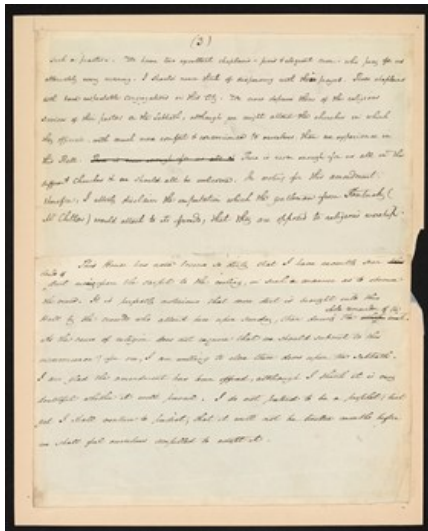 (3)
such a practice. We have two excellent chaplains - good & eloquent men - who pray for us
alternately every morning. I should never think of dispensing with their prayers. These chaplains
both have respectable congregations in this City. We now deprive them of the religious
services of their pastor on the Sabbath, although we might attend the churches in which
they officiate with much more comfort & convenience to ourselves, than we experience in
this Hall. There is room enough for us all in the
different Churches & we should all be welcome. In voting for this amendment
therefore, I utterly disclaim the imputation which the gentleman from Kentucky (
Mr Chilton) would attach to its friends, that they are opposed to religious worship.
This House has now become so dirty that I have recently seen
clouds of dust rising from the carpet to the ceiling, in such a manner as to
the room. It is perfectly notorious that more dirt is brought into this
Hall by the crowds who attend here upon Sunday, than during the whole remainder of the week.
As the cause of religion does not require that we should submit to this
inconvenience, for one, I am willing to close these doors upon the Sabbath.
I am glad this amendment has been offered, although I think it is very
doubtful whether it will prevail. I do not pretend to be a prophet; but
yet I shall venture to predict, that it will not be twelve months before
we shall feel ourselves compelled to adopt it.